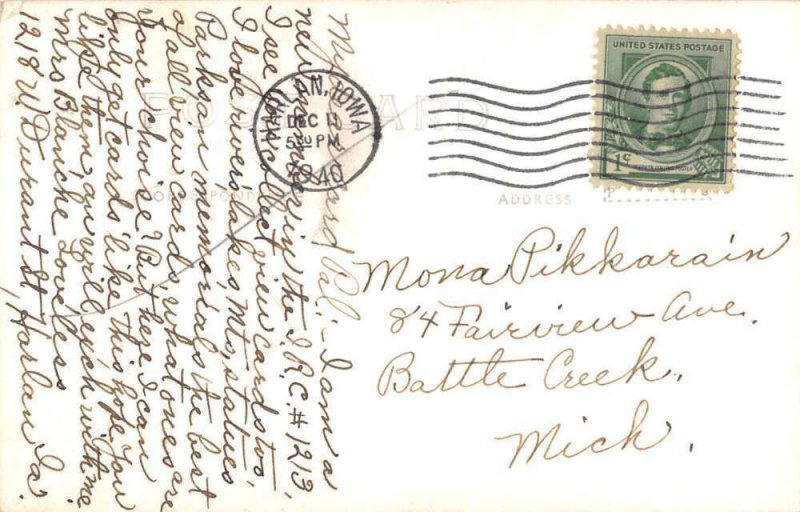 My Card Pal:- I am a
new member in the I.R.C. #1213,
I see you collect view cards too,
I love rivers, lakes, Mts, statues
Parks an memorials the best
of all view cards, what ones are
your choice? But here I can
only get cards like this, hope you
like them, an will exch with me
Mrs Blanche Loveless
1218 W. Durant St, Harlan, Ia.
POST CARD
CORRESPONDENCE
ADDRESS
HARLAN, IOWA
DEC 11
5 30 PM
1940
UNITED STATES POSTAGE
1¢
Mona Pikkarain
84 Fairview Ave.
Battle Creek,
Mich.